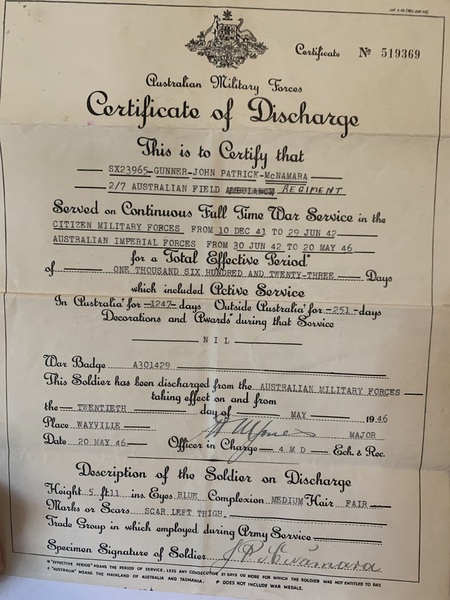 Certificate No 519369
Australian Military Forces
Certificate of Discharge
This is to Certify that
SX23965-GUNNER-JOHN PATRICK-McNAMARA
2/7 AUSTRALIAN FIELD AMBULANCE REGIMENT
Served on Continuous Full Time War Service in the
CITIZEN MILITARY FORCES FROM 10 DEC 41 TO 29 JUN 42
AUSTRALIAN IMPERIAL FORCES FROM 30 JUN 42 TO 20 MAY 46
for a Total Effective Period*
of ONE THOUSAND SIX HUNDRED AND TWENTY-THREE Days
which included Active Service
In Australia† for -1247- days Outside Australia† for -251-days
Decorations and Awards# during that Service
NIL
War Badge A301429
This Soldier has been discharged from the AUSTRALIAN MILITARY FORCES
taking effect on and from
the TWENTIETH day of MAY 1946
Place WAYVILLE MAJOR
Date 20 MAY 46 Officer in Charge 4 M D Ech. & Rec.
Description of the Soldier on Discharge
Height 5 ft 11 ins Eyes BLUE Complexion MEDIUM Hair FAIR
Marks or Scars SCAR LEFT THIGH.
Trade Group in which employed during Army Service
Specimen Signature of Soldier J P McNamara
* "EFFECTIVE PERIOD" MEANS THE PERIOD OF SERVICE, LESS ANY CONSECUTIVE 21 DAYS OR MORE FOR WHICH THE SOLDIER WAS NOT ENTITLED TO PAY.
† "AUSTRALIA" MEANS THE MAINLAND OF AUSTRALIA AND TASMANIA. # DOES NOT INCLUDE WAR MEDALS.